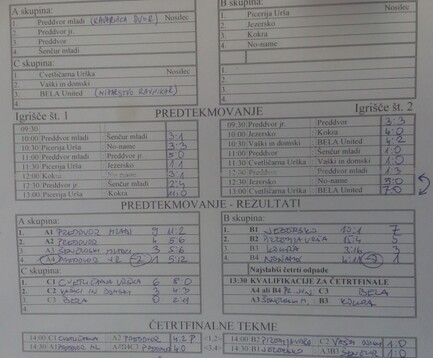 A skupina:
Nosilec
1. Preddvor mladi
2. Preddvor jr.
3. Preddvor
4. Šenčur mladi
C skupina:
Nosilec
1. Cvetličarna Urška
2. Vaški in domski
3. BELA United
4.
B skupina:
Nosilec
1. Picerija Urša
2. Jezersko
3. Kokra
4. No-name
Igrišče št. 1
PREDTEKMOVANJE
Igrišče št. 2
09:30
10:00 Preddvor mladi Šenčur mladi 3:1
10:30 Picerija Urša No-name 3:3
11:00 Preddvor mladi Preddvor jr. 5:0
11:30 Picerija Urša Jezersko 1:1
12:00 Kokra No-name 3:1
12:30 Preddvor Šenčur mladi 2:4
13:00 Picerija Urša Kokra 11:0
09:30 Preddvor jr. Preddvor 3:3
10:00 Jezersko Kokra 4:0
10:30 Vaški in domski BELA United 4:2
11:00 Preddvor jr. Šenčur mladi 1:0
11:30 Cvetličarna Urška Vaški in domski 1:0
12:00 Preddvor mladi Preddvor 1:3
12:30 Jezersko No-name
13:00 Cvetličarna Urška BELA United 7:0
PREDTEKMOVANJE - REZULTATI
A skupina:
1. A1 PREDDVOR MLADI 9 11:2
2. A2 PREDDVOR 4 5:6
3. A3 ŠENČUR MLADI 3 5:6
4. A4 PREDDVOR JR. 1 5:12
C skupina:
1. C1 CVETLIČARNA URŠKA 6 8:0
2. C2 VAŠKI IN DOMSKI 3 4:3
3. C3 BELA 0 2:11
B skupina:
1. B1 JEZERSKO 7
2. B2 PICERIJA URŠA 5
3. B3 KOKRA 3
4. B4 NONAME 1
Najslabši četrti odpade
13:30 KVALIFIKACIJE ZA ČETRTFINALE
A4 ali B4 C3 BELA
A3 ŠENČUR M. B3 KOKRA
ČETRTFINALNE TEKME
14:00 C1 CVETLIČARNA A2 PREDDVOR 4:2 P
14:30 A1 PREDDVOR ML 4:0
14:00 B2 C2 VAŠKI 1:0
14:30 B1 JEZERSKO A3B3 1:0